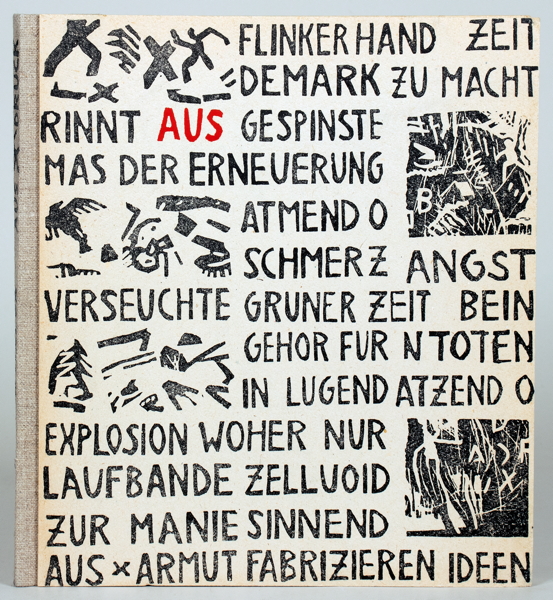 FLINKER HAND ZEIT
DEMARK ZU MACHT
RINNT AUS GESPINSTE
MAS DER ERNEUERUNG
ATMEND O
SCHMERZ ANGST
VERSEUCHTE GRUNER ZEIT BEIN
GEHOR FUR N TOTEN
IN LUGEND ATZEND O
EXPLOSION WOHER NUR
LAUFBANDE ZELLUOID
ZUR MANIE SINNEND
AUS x ARMUT FABRIZIEREN IDEEN
B